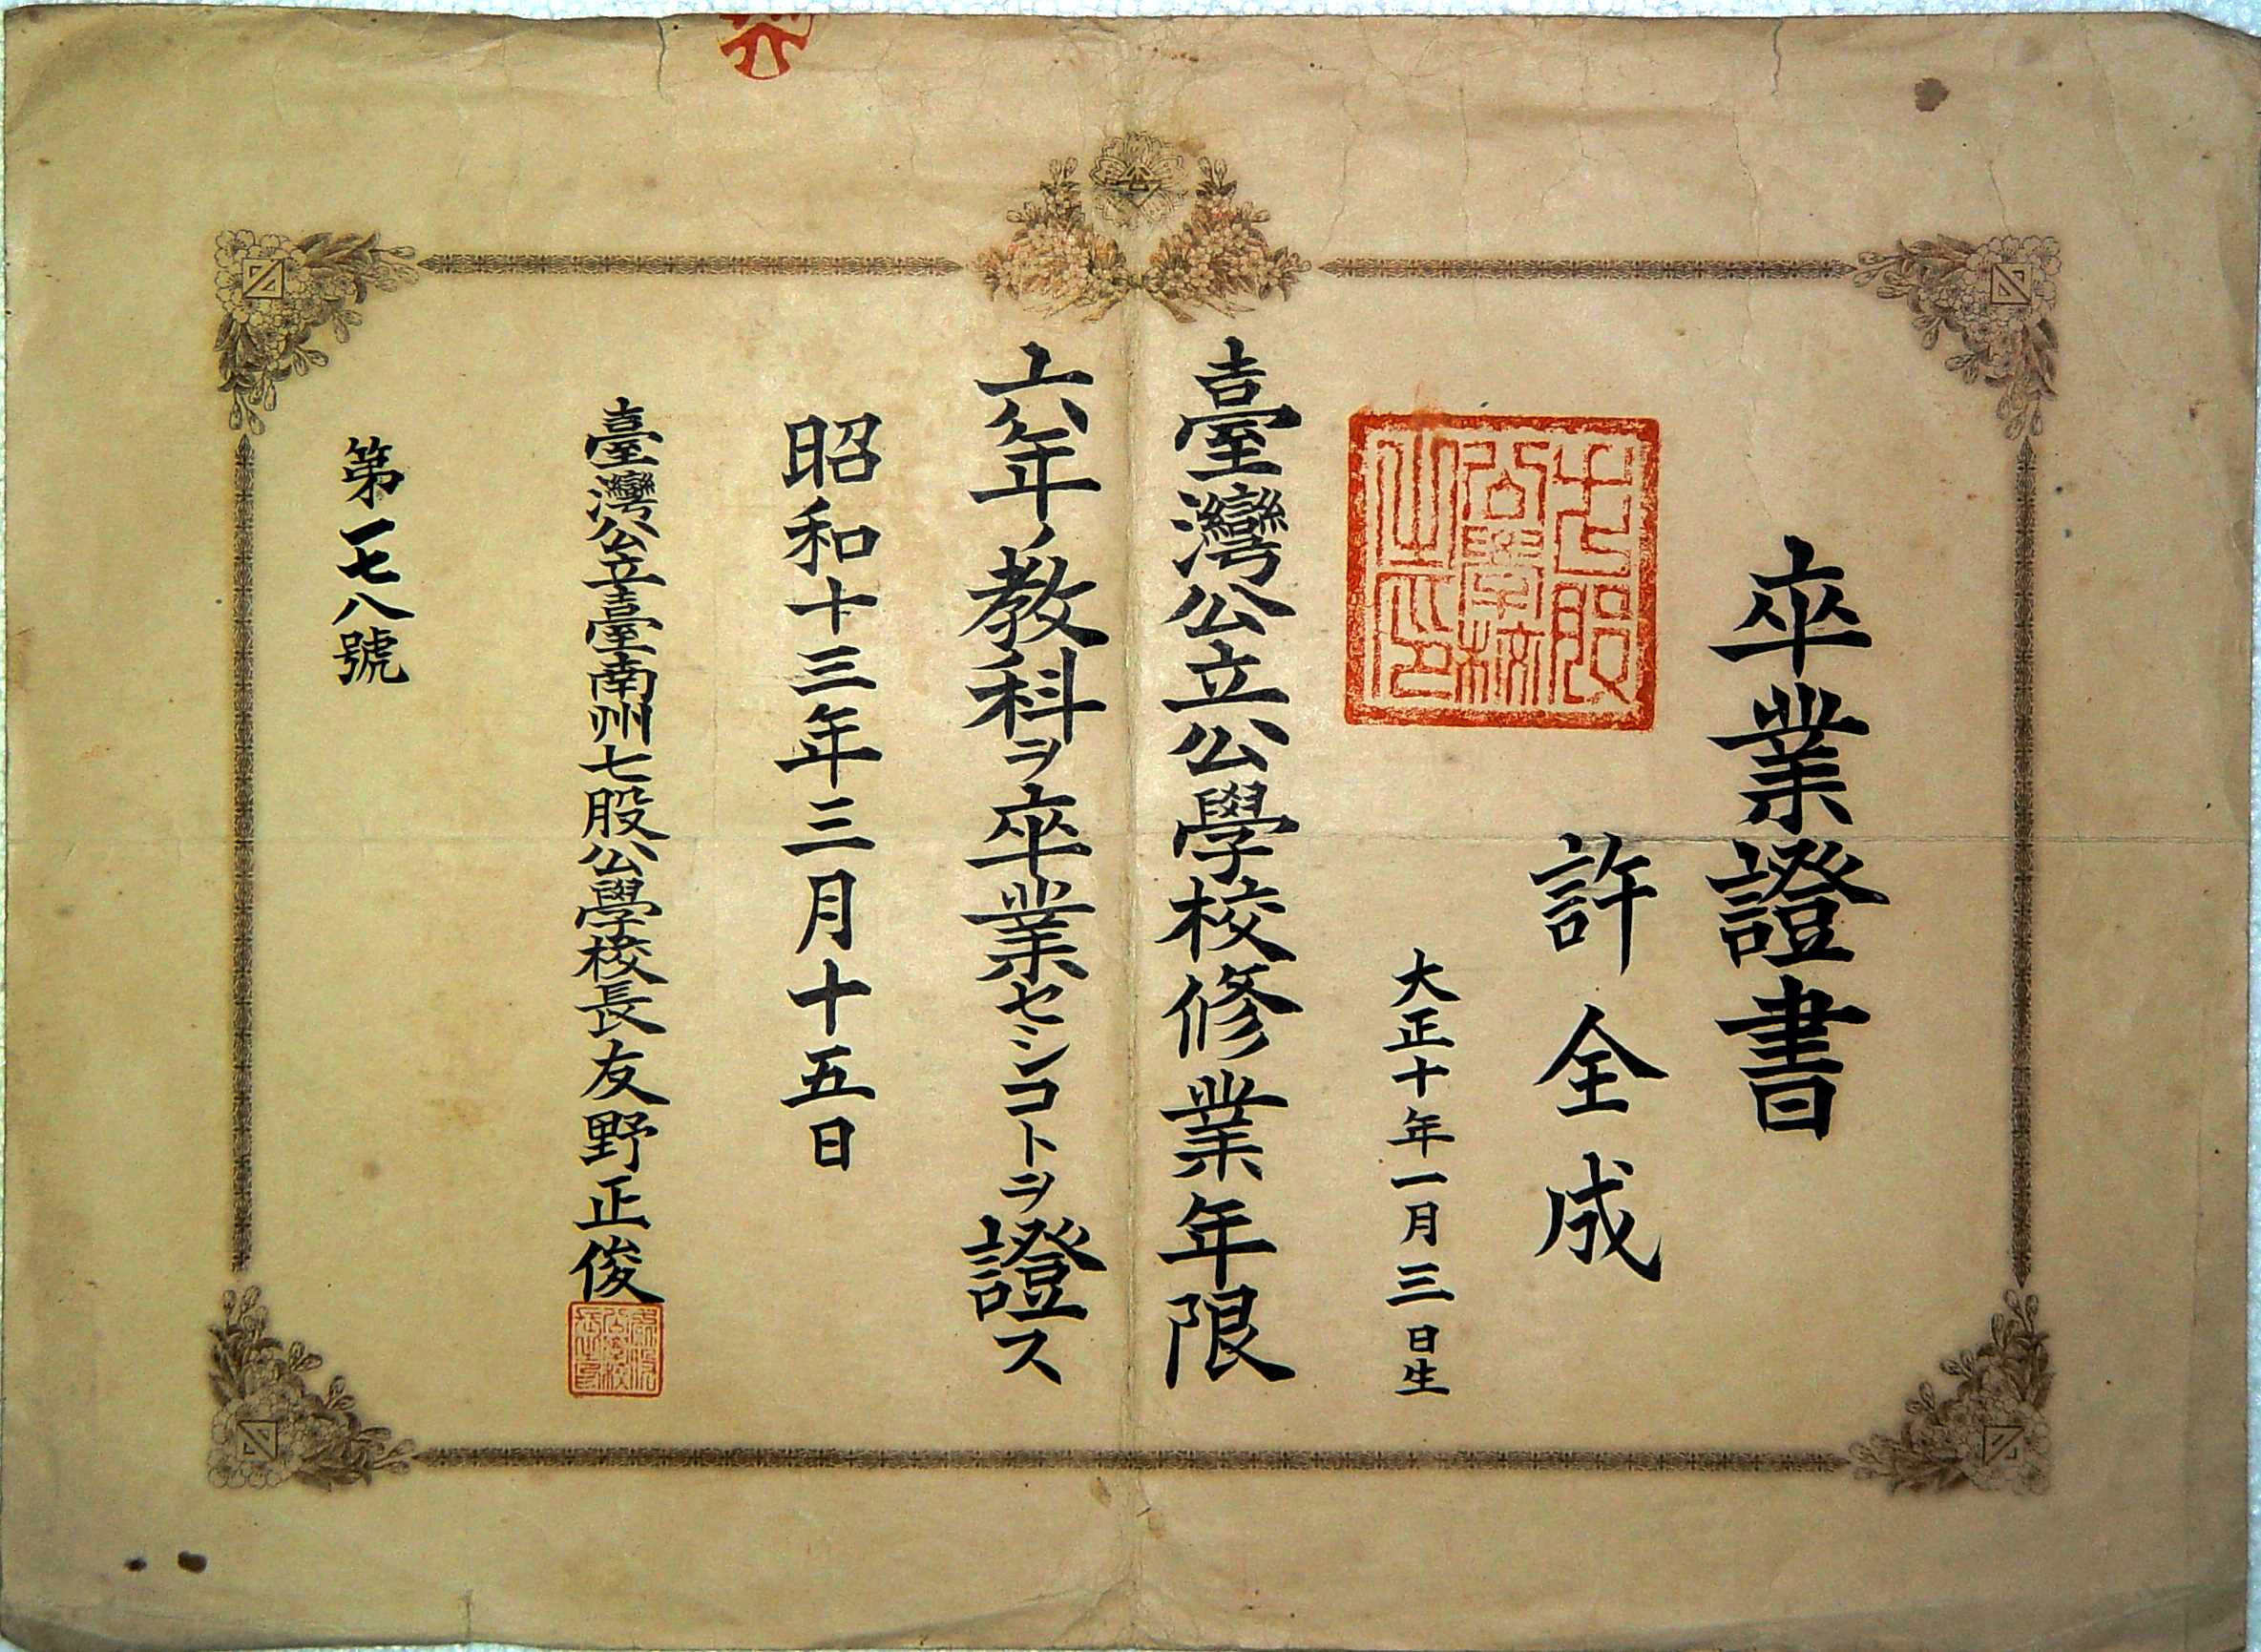 卒業證書
許全成
大正十年一月三日生
七股公學校之印
臺灣公立公學校修業年限
六年ノ教科ヲ卒業セシコトヲ證ス
昭和十三年三月十五日
臺灣公立臺南州七股公學校長友野正俊
第一七八號